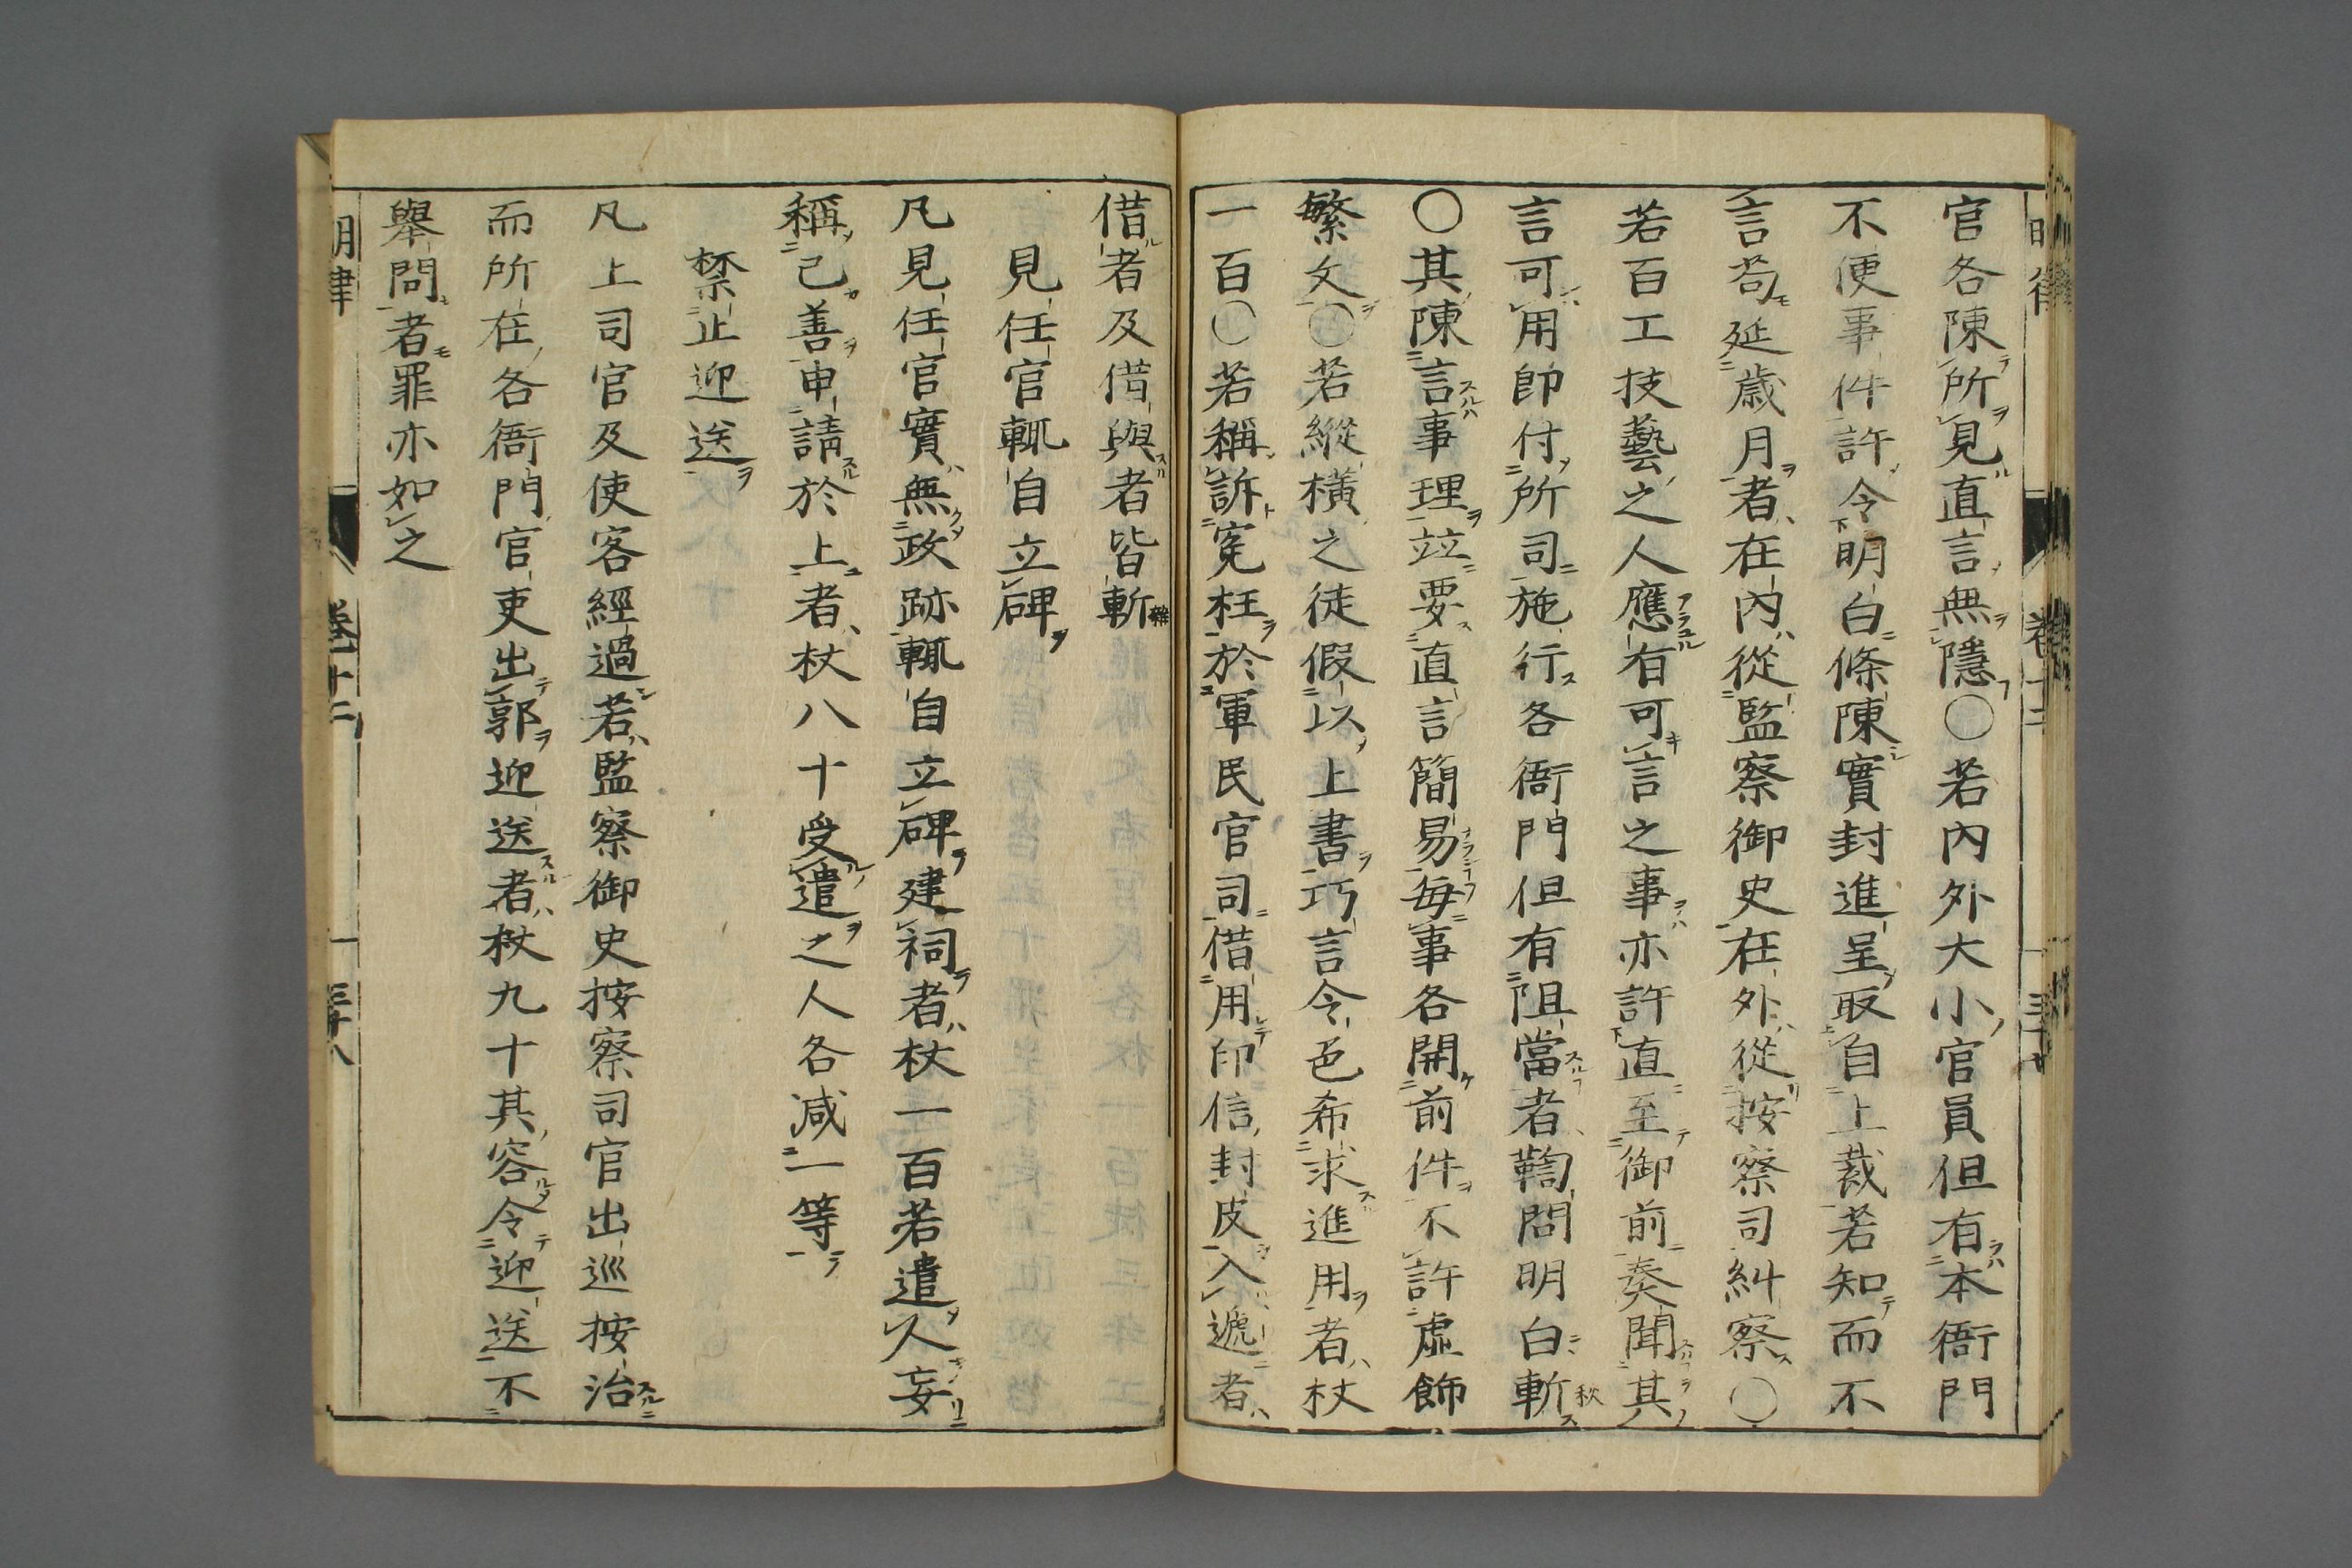 官各陳所見直言無隱○若內外大小官員但有本衙門
不便事件許令明白條陳實封進呈取自上裁若知而不
言苟延歲月者在內從監察御史在外從按察司糾察○
若百工技藝之人應有可言之事亦許直至御前奏聞其
言可用即付所司施行各衙門但有阻當者鞫問明白斬秋
○其陳言事理竝要直言簡易每事各開前件不許虛飾
繁文○若縱橫之徒假以上書巧言令色希求進用者杖
一百○若稱訴冤枉於軍民官司借用印信封皮入遞者
借者及借與者皆斬雜
見任官輒自立碑
凡見任官實無政跡輒自立碑建祠者杖一百若遣人妄
稱己善申請於上者杖八十受遣之人各減一等
禁止迎送
凡上司官及使客經過若監察御史按察司官出巡按治
而所在各衙門官吏出郭迎送者杖九十其容令迎送不
舉問者罪亦如之
明律 卷十二 三十八